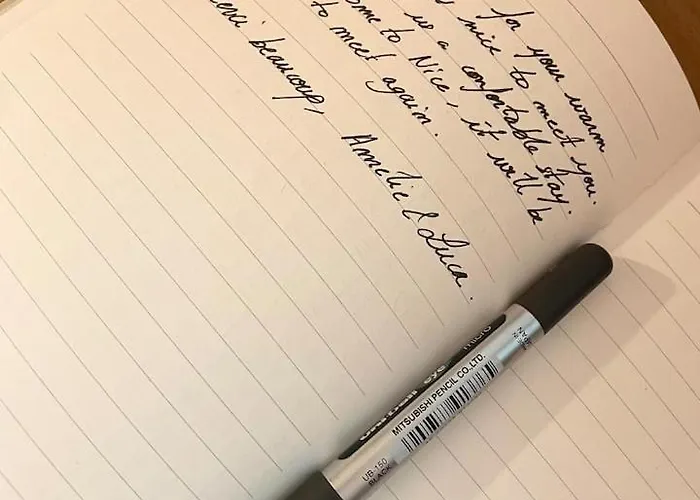 for your warm
nice to meet you.
us a comfortable stay.
to Nice, it will be
to meet again.
beaucoup,
Amélie & Luca.
eye micro
MITSUBISHI PENCIL CO.,LTD.
UB-150
BLACK
JAPAN